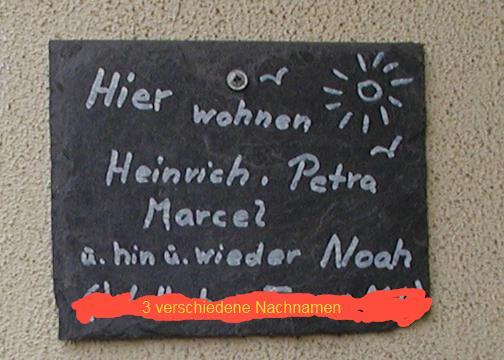 Hier
wohnen
Heinrich. Petra
Marcel
u. hin u. wieder Noah
3 verschiedene Nachnamen